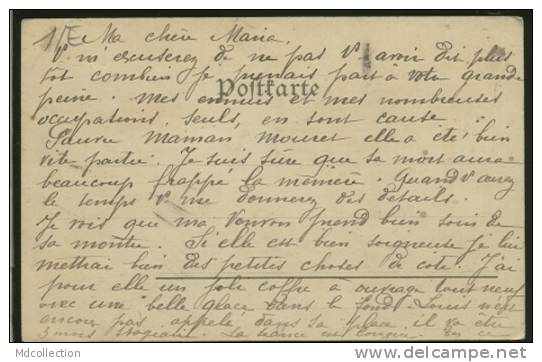 Ma chère Maria,
V. m'excuserez de ne pas V. avoir dit plus
tôt combien je prenais part à votre grande
peine. Mes ennuis et mes nombreuses
Postkarte
occupations, seuls, en sont cause.
Pauvre maman Mouret elle a été bien
vite partie. Je suis sûre que sa mort aura
beaucoup frappé la mémère. Quand V. aurez
le temps V. me donnerez des détails.
Je vois que ma prend bien soin de
sa montre. Si elle est bien soigneuse je lui
mettrai bien des petites choses de côté. J'ai
pour elle un joli coffre à ouvrage tout neuf
avec une belle glace dans le fond. Louis n'est
encore pas appelé, dans sa place il va être
3 mois stagiaire. La
MDcollection
www.delcampe.net